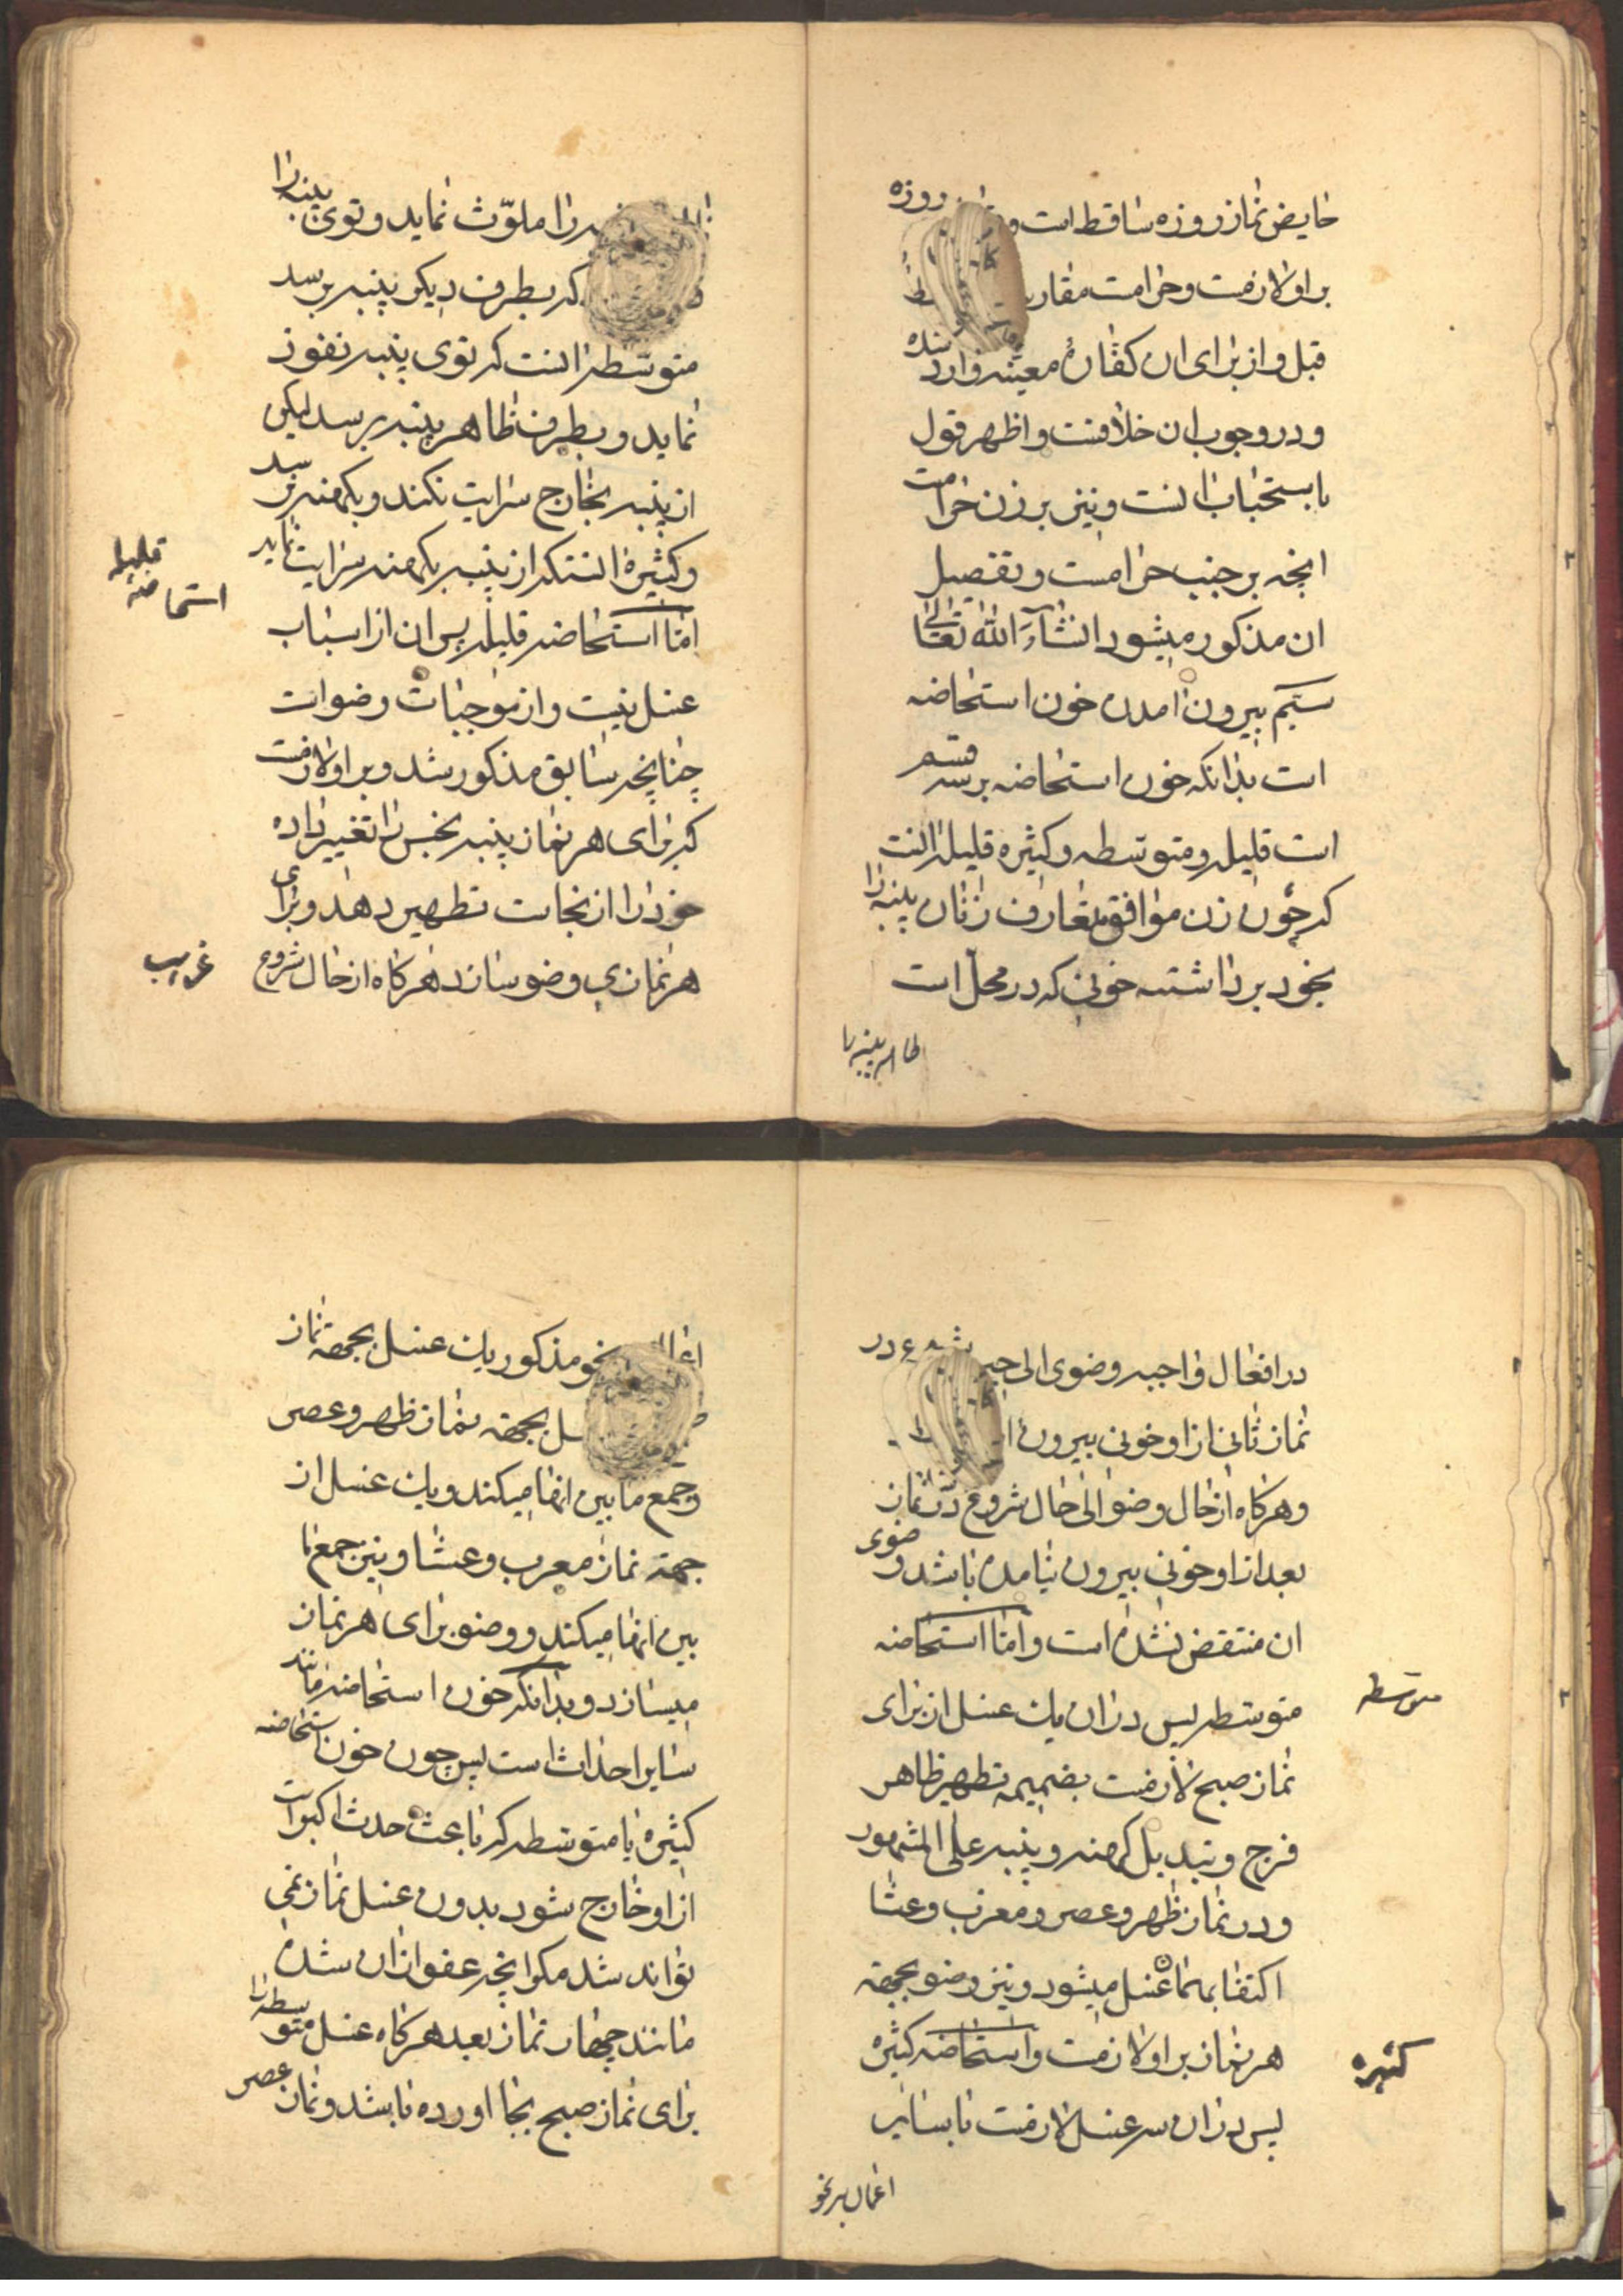 حایض نماز روزه ساقط است و روزه
بر او لازمست و حرامست
قبل و از برای ان کفاره معینه وارد شده
و در وجوب ان خلافست و اظهر قول
باستحباب انست و نیز بر زن حرامست
انچه بر جنب حرامست و تفصیل
ان مذکور میشود انشاء الله تعالی
سیم بیرون امدن خون استحاضه
است بدانکه خون استحاضه بر سه قسم
است قلیله و متوسطه و کثیره قلیله انست
که چون زن موافق متعارف زنان پنبه را
بخود برداشته خونی که در محل است
ظاهر پنبه را
را ملوّث نماید و توی پنبه را
که بطرف دیکر پنبه برسد
متوسطه انست که توی پنبه نفوذ
نماید و بطرف ظاهر پنبه برسد لیکن
از پنبه بخارج سرایت نکند و بکهنه نرسد
و کثیره انستکه از پنبه بکهنه سرایت نماید
قلیله
استحاضه
اما استحاضه قلیله پس ان از اسباب
غسل نیست و از موجبات وضو است
چنانچه سابق مذکور شد و بر او لازمست
که برای هر نماز پنبه نجس را تغییر داده
خود را از نجاست تطهیر دهد و برای
هر نمازی وضو سازد هرکاه از حال شروع
در افعال واجبه وضوی الی در
نماز ثانی از او خونی بیرون
و هرکاه از حال وضو الی حال شروع در نماز
بعد از او خونی بیرون نیامده باشد وضوی
ان منتقض نشده است و اما استحاضه
متوسطه
متوسطه پس در ان یک غسل از برای
نماز صبح لازمست بضمیمه تطهیر ظاهر
فرج و تبدیل کهنه و پنبه علی المشهور
و در نماز ظهر و عصر و مغرب و عشا
اکتفا بهمان غسل میشود و نیز وضو بجهة
هر نماز بر او لازمست و استحاضه کثیره
کثیره
پس در ان سه غسل لازمست با سایر
اعمال بر نحو
اعمال نحو مذکور یک غسل بجهة نماز
بجهة نماز ظهر و عصر
و جمع ما بین انها میکند و یک غسل از
جهة نماز مغرب و عشا و نیز جمع ما
بین انها میکند و وضو برای هر نماز
میسازد و بدانکه خون استحاضه مانند
سایر احداث است پس چون خون استحاضه
کثیره یا متوسطه که باعث حدث اکبر است
از او خارج شود بدون غسل نماز نمی
تواند شد مکر انچه عفو از ان شده
مانند چهار نماز بعد هرکاه غسل متوسطه را
برای نماز صبح بجا اورده باشد و نماز عصر